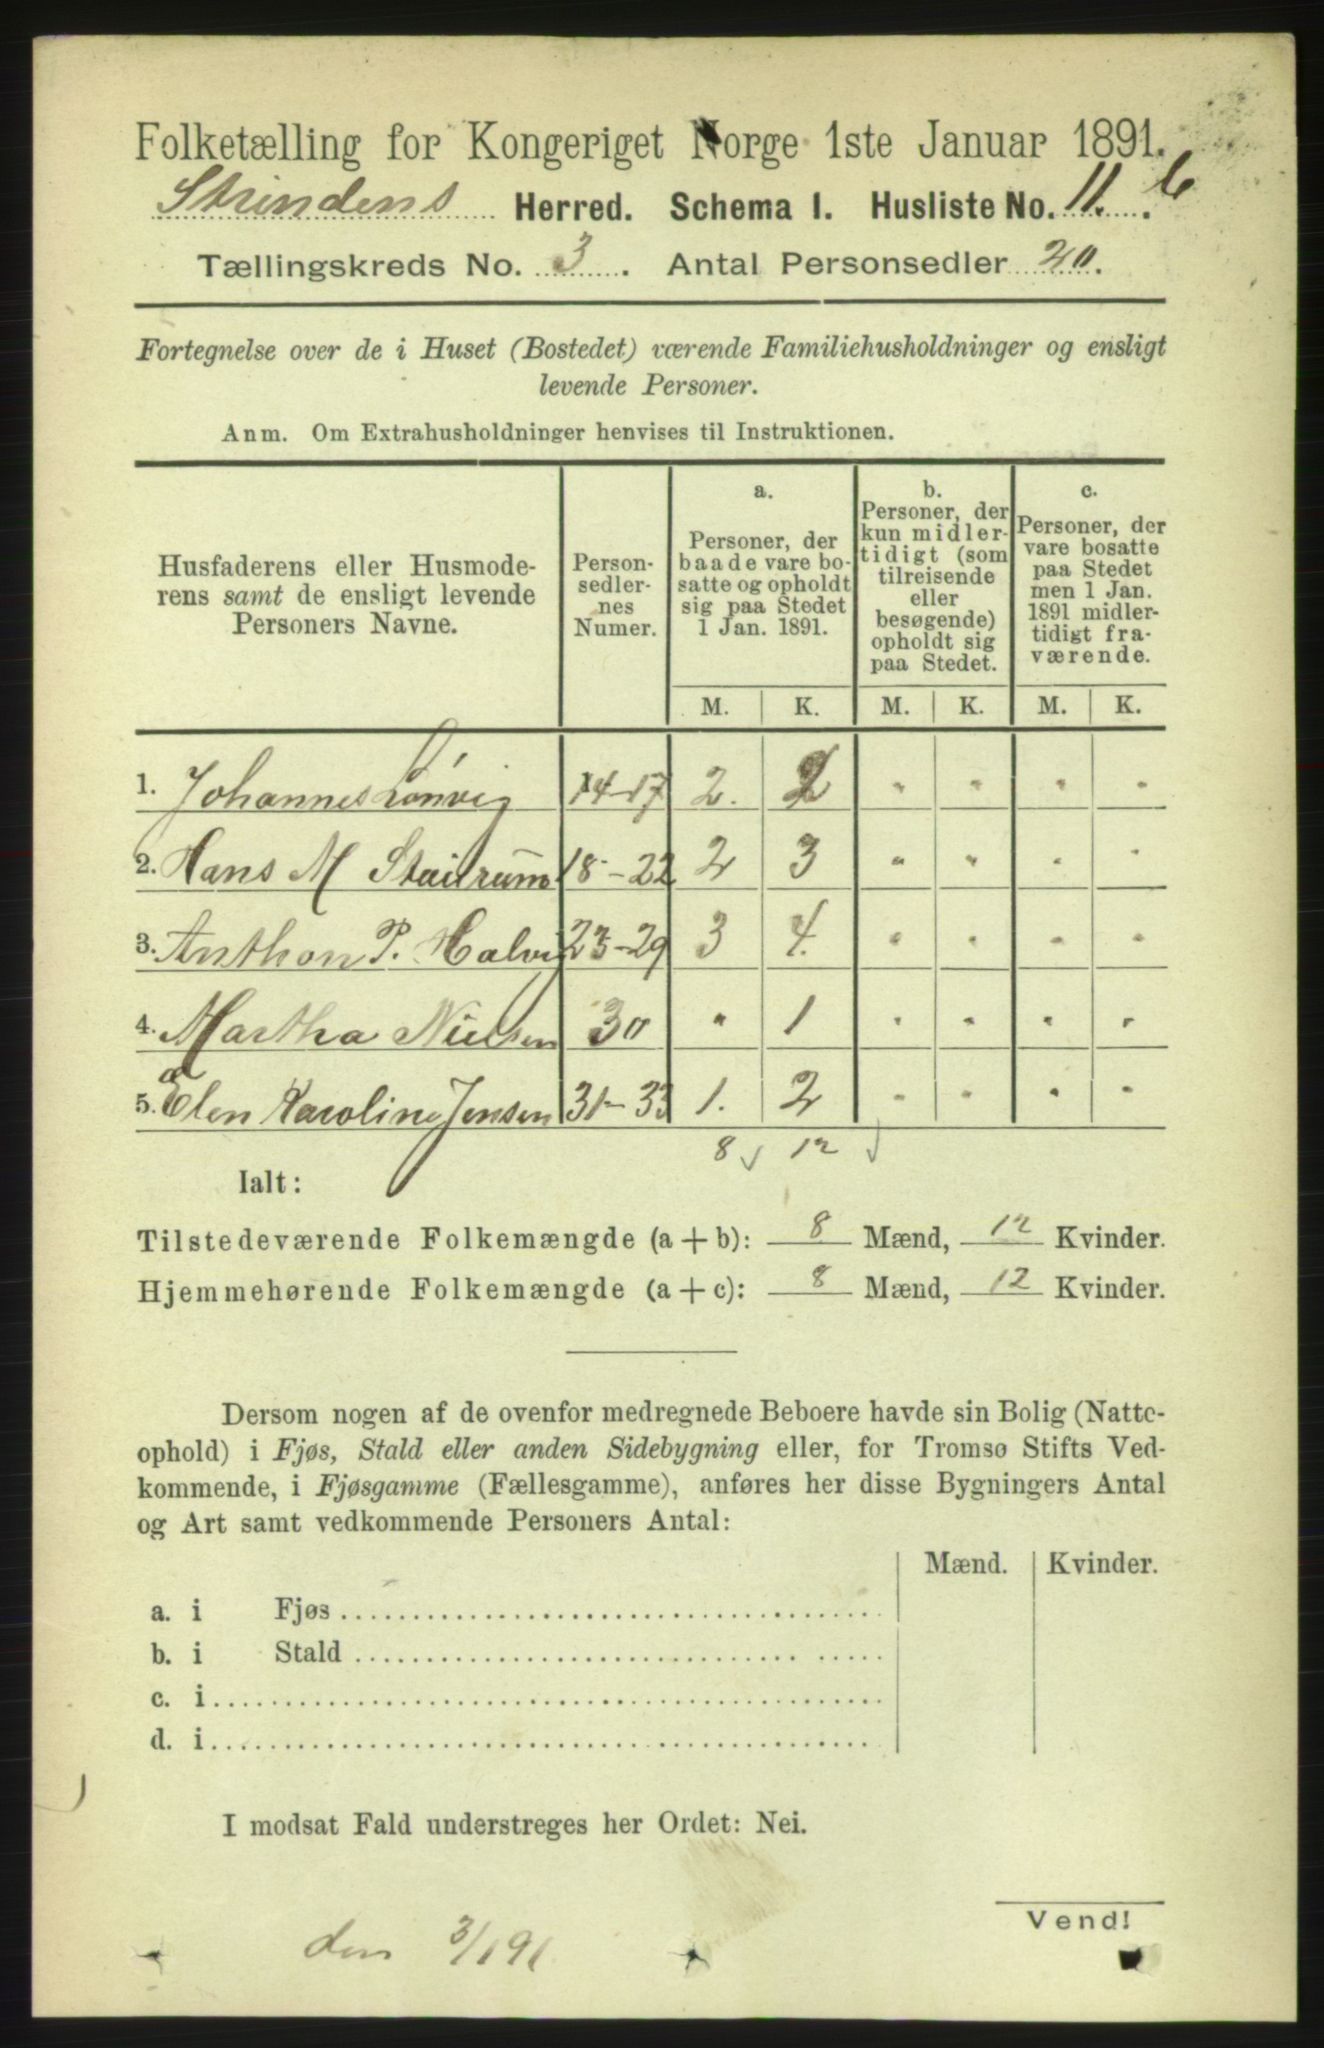 Folketælling for Kongeriget Norge 1ste Januar 1891.
Strindens Herred. Schema I. Husliste No. 11. b
Tællingskreds No. 3. Antal Personsedler 20.
Fortegnelse over de i Huset (Bostedet) værende Familiehusholdninger og ensligt
levende Personer.
Anm. Om Extrahusholdninger henvises til Instruktionen.
Husfaderens eller Husmode-
rens samt de ensligt levende
Personers Navne.
Person-
sedler-
nes
Numer.
a.
Personer, der
baade vare bo-
satte og opholdt
sig paa Stedet
1 Jan. 1891.
b.
Personer, der
kun midler-
tidigt (som
tilreisende
eller
besøgende)
opholdt sig
paa Stedet.
c.
Personer, der
vare bosatte
paa Stedet
men 1 Jan.
1891 midler-
tidigt fra-
værende.
M. K. M. K. M. K.
1. Johannes Lønvig 14-17 2. 2 " " " "
2. Hans M 18-22 2 3 " " " "
3. Anthon P. Halvig 23-29 3 4. " " " "
4. Martha Nielsen 30 " 1 " " " "
5. Elen Karoline Jensen 31-33 1. 2 " " " "
8 12
Ialt:
Tilstedeværende Folkemængde (a + b): 8 Mænd, 12 Kvinder.
Hjemmehørende Folkemængde (a + c): 8 Mænd, 12 Kvinder.
Dersom nogen af de ovenfor medregnede Beboere havde sin Bolig (Natte-
ophold) i Fjøs, Stald eller anden Sidebygning eller, for Tromsø Stifts Ved-
kommende, i Fjøsgamme (Fællesgamme), anføres her disse Bygningers Antal
og Art samt vedkommende Personers Antal:
Mænd. Kvinder.
a. i Fjøs
b. i Stald
c. i
d. i
I modsat Fald understreges her Ordet: Nei.
Vend!
den 3/1 91